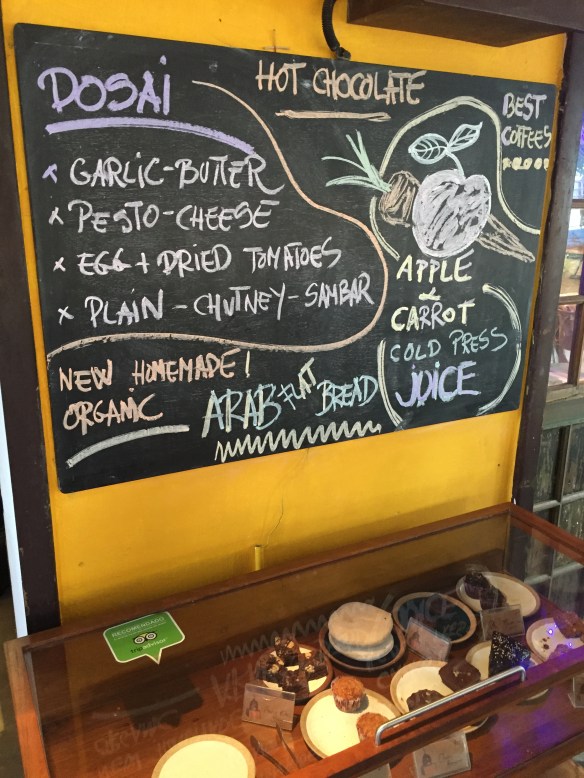 DOSAI
x GARLIC-BUTTER
x PESTO-CHEESE
x EGG + DRIED TOMATOES
x PLAIN - CHUTNEY - SAMBAR
HOT CHOCOLATE
BEST
COFFEES
APPLE
&
CARROT
COLD PRESS
JUICE
NEW HOMEMADE!
ORGANIC
ARAB FLAT BREAD
RECOMENDADO
tripadvisor